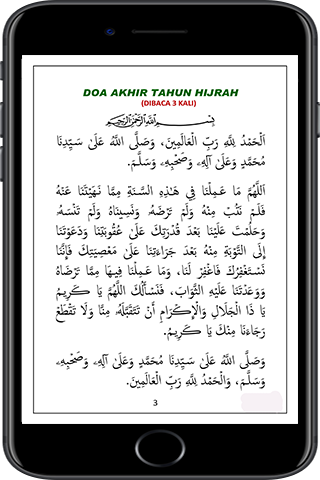 DOA AKHIR TAHUN HIJRAH
(DIBACA 3 KALI)
بِسْمِ اللَّهِ الرَّحْمَٰنِ الرَّحِيمِ
اَلْحَمْدُ لِلَّهِ رَبِّ الْعَالَمِينَ، وَصَلَّى اللَّهُ عَلَىٰ سَيِّدِنَا
مُحَمَّدٍ وَعَلَىٰ آلِهِۦ وَصَحْبِهِۦ وَسَلَّمَ.
اَللَّهُمَّ مَا عَمِلْنَا فِي هَٰذِهِ السَّنَةِ مِمَّا نَهَيْتَنَا عَنْهُ
فَلَمْ نَتُبْ مِنْهُ وَلَمْ تَرْضَهُ وَنَسِينَاهُ وَلَمْ تَنْسَهُ،
وَحَلُمْتَ عَلَيْنَا بَعْدَ قُدْرَتِكَ عَلَىٰ عُقُوبَتِنَا وَدَعَوْتَنَا
إِلَى التَّوْبَةِ مِنْهُ بَعْدَ جَرَاءَتِنَا عَلَىٰ مَعْصِيَتِكَ فَإِنَّنَا
نَسْتَغْفِرُكَ فَاغْفِرْ لَنَا، وَمَا عَمِلْنَا فِيهَا مِمَّا تَرْضَاهُ
وَوَعَدْتَنَا عَلَيْهِ الثَّوَابَ، فَنَسْأَلُكَ اللَّهُمَّ يَا كَرِيمُ
يَا ذَا الْجَلَالِ وَالْإِكْرَامِ أَنْ تَتَقَبَّلَهُ مِنَّا وَلَا تَقْطَعْ
رَجَاءَنَا مِنْكَ يَا كَرِيمُ.
وَصَلَّى اللَّهُ عَلَىٰ سَيِّدِنَا مُحَمَّدٍ وَعَلَىٰ آلِهِۦ وَصَحْبِهِۦ
وَسَلَّمَ، وَالْحَمْدُ لِلَّهِ رَبِّ الْعَالَمِينَ.
3